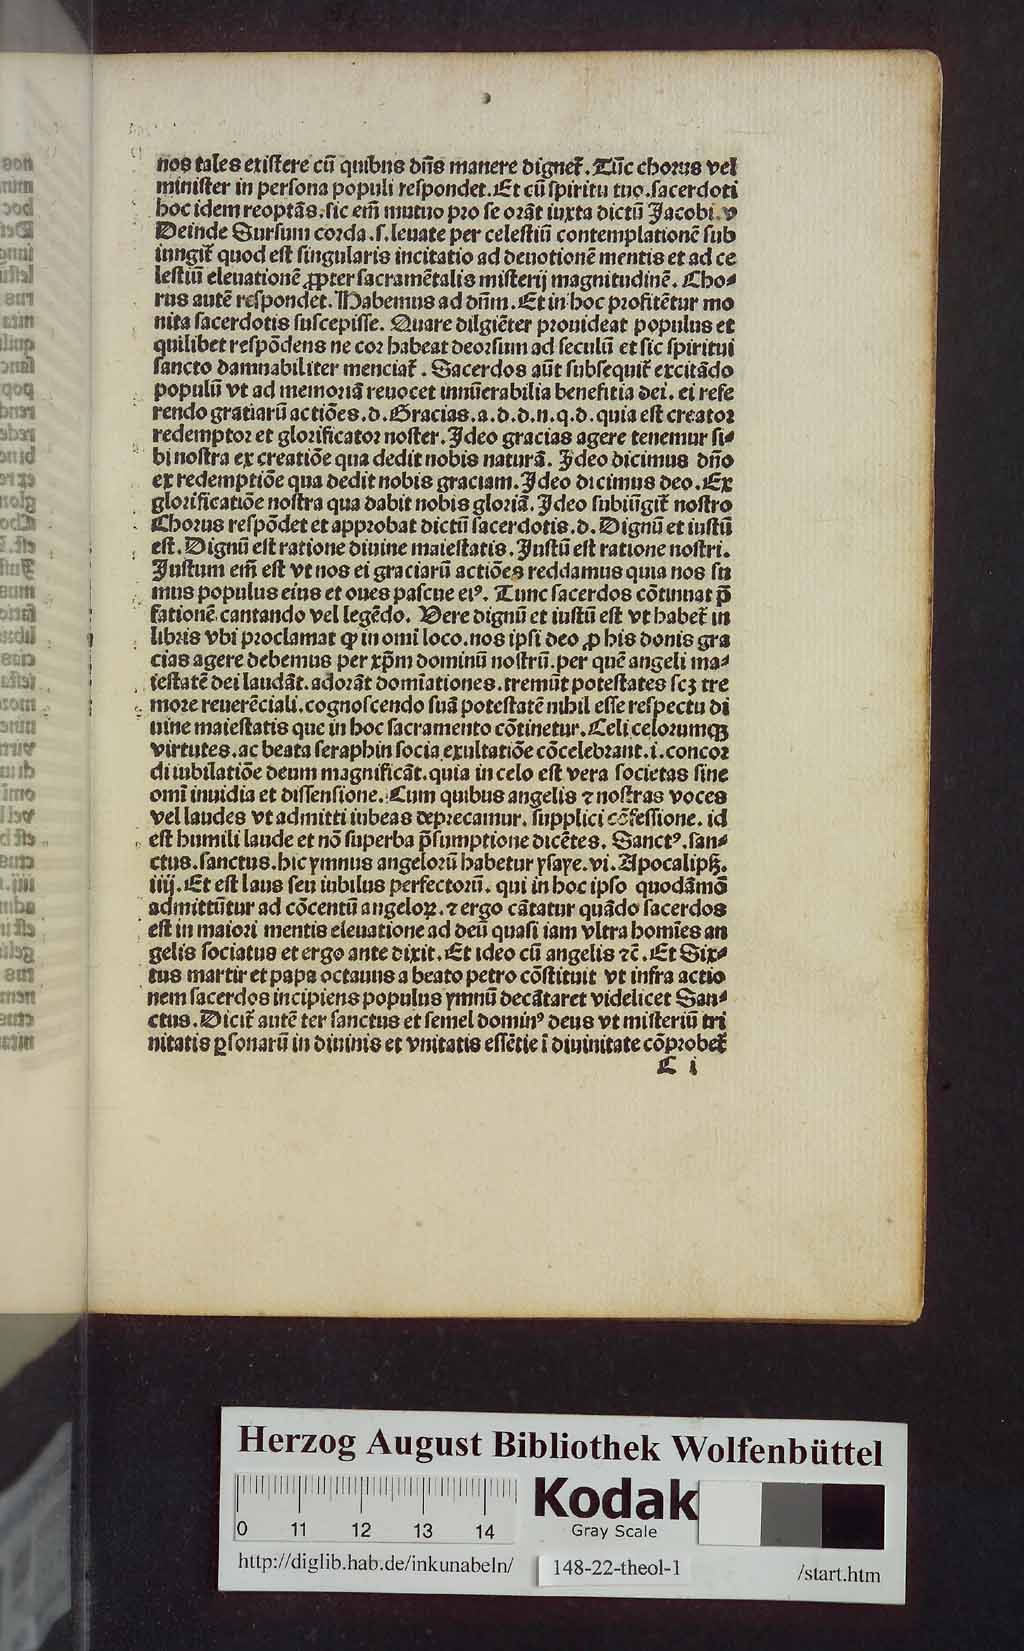 nos tales existere cū quibus dn̄s manere dignet᷑. Tūc chorus vel
minister in persona populi respondet. Et cū spiritu tuo. sacerdoti
hoc idem reoptās. sic em̄ mutuo pro se orāt iuxta dictū Jacobi. v
Deinde Sursum corda. s. leuate per celestiū contemplationē sub
iungit᷑ quod est singularis incitatio ad deuotionē mentis et ad ce
lestiū eleuationē ꝓpter sacramētalis misterij magnitudinē. Cho-
rus autē respondet. Habemus ad dn̄m. Et in hoc profitētur mo
nita sacerdotis suscepisse. Quare dilgiēter prouideat populus et
quilibet respōdens ne cor habeat deorsum ad seculū et sic spiritui
sancto damnabiliter menciat᷑. Sacerdos aūt subsequit᷑ excitādo
populū vt ad memoriā reuocet innūerabilia benefitia dei. ei refe
rendo gratiarū actiōes. d. Gracias. a. d. d. n. q. d. quia est creator
redemptor et glorificator noster. Jdeo gracias agere tenemur si-
bi nostra ex creatiōe qua dedit nobis naturā. Jdeo dicimus dn̄o
ex redemptiōe qua dedit nobis graciam. Jdeo dicimus deo. Ex
glorificatiōe nostra qua dabit nobis gloriā. Jdeo subiūgit᷑ nostro
Chorus respōdet et approbat dictū sacerdotis. d. Dignū et iustū
est. Dignū est ratione diuine maiestatis. Justū est ratione nostri.
Justum em̄ est vt nos ei graciarū actiōes reddamus quia nos su
mus populus eius et oues pascue eiꝰ. Tunc sacerdos cōtinuat p̄
fationē cantando vel legēdo. Vere dignū et iustū est vt habet᷑ in
libris vbi proclamat ꝙ in omi loco. nos ipsi deo ꝓ his donis gra
cias agere debemus per xp̄m dominū nostrū. per quē angeli ma-
iestatē dei laudāt. adorāt domīationes. tremūt potestates scꝫ tre
more reuerēciali. cognoscendo suā potestatē nihil esse respectu di
uine maiestatis que in hoc sacramento cōtinetur. Celi celorumqꝫ
virtutes. ac beata seraphin socia exultatiōe cōcelebrant. i. concor
di iubilatiōe deum magnificāt. quia in celo est vera societas sine
omī inuidia et dissensione. Cum quibus angelis ⁊ nostras voces
vel laudes vt admitti iubeas deprecamur. supplici cōfessione. id
est humili laude et nō superba p̄sumptione dicētes. Sanctꝰ. san-
ctus. sanctus. hic ymnus angelorū habetur ysaye. vi. Apocalipꝭ.
iiij. Et est laus seu iubilus perfectorū. qui in hoc ipso quodāmō
admittūtur ad cōcentū angeloꝝ. ⁊ ergo cātatur quādo sacerdos
est in maiori mentis eleuatione ad deū quasi iam vltra homīes an
gelis sociatus et ergo ante dixit. Et ideo cū angelis ⁊c̄. Et Six-
tus martir et papa octauus a beato petro cōstituit vt infra actio
nem sacerdos incipiens populus ymnū decātaret videlicet San-
ctus. Dicit᷑ autē ter sanctus et semel dominꝰ deus vt misteriū tri
nitatis ꝑsonarū in diuinis et vnitatis essētie ī diuinitate cōprobet᷑
C i
Herzog August Bibliothek Wolfenbüttel
Kodak
Gray Scale
0 11 12 13 14
http://diglib.hab.de/inkunabeln/ 148-22-theol-1 /start.htm